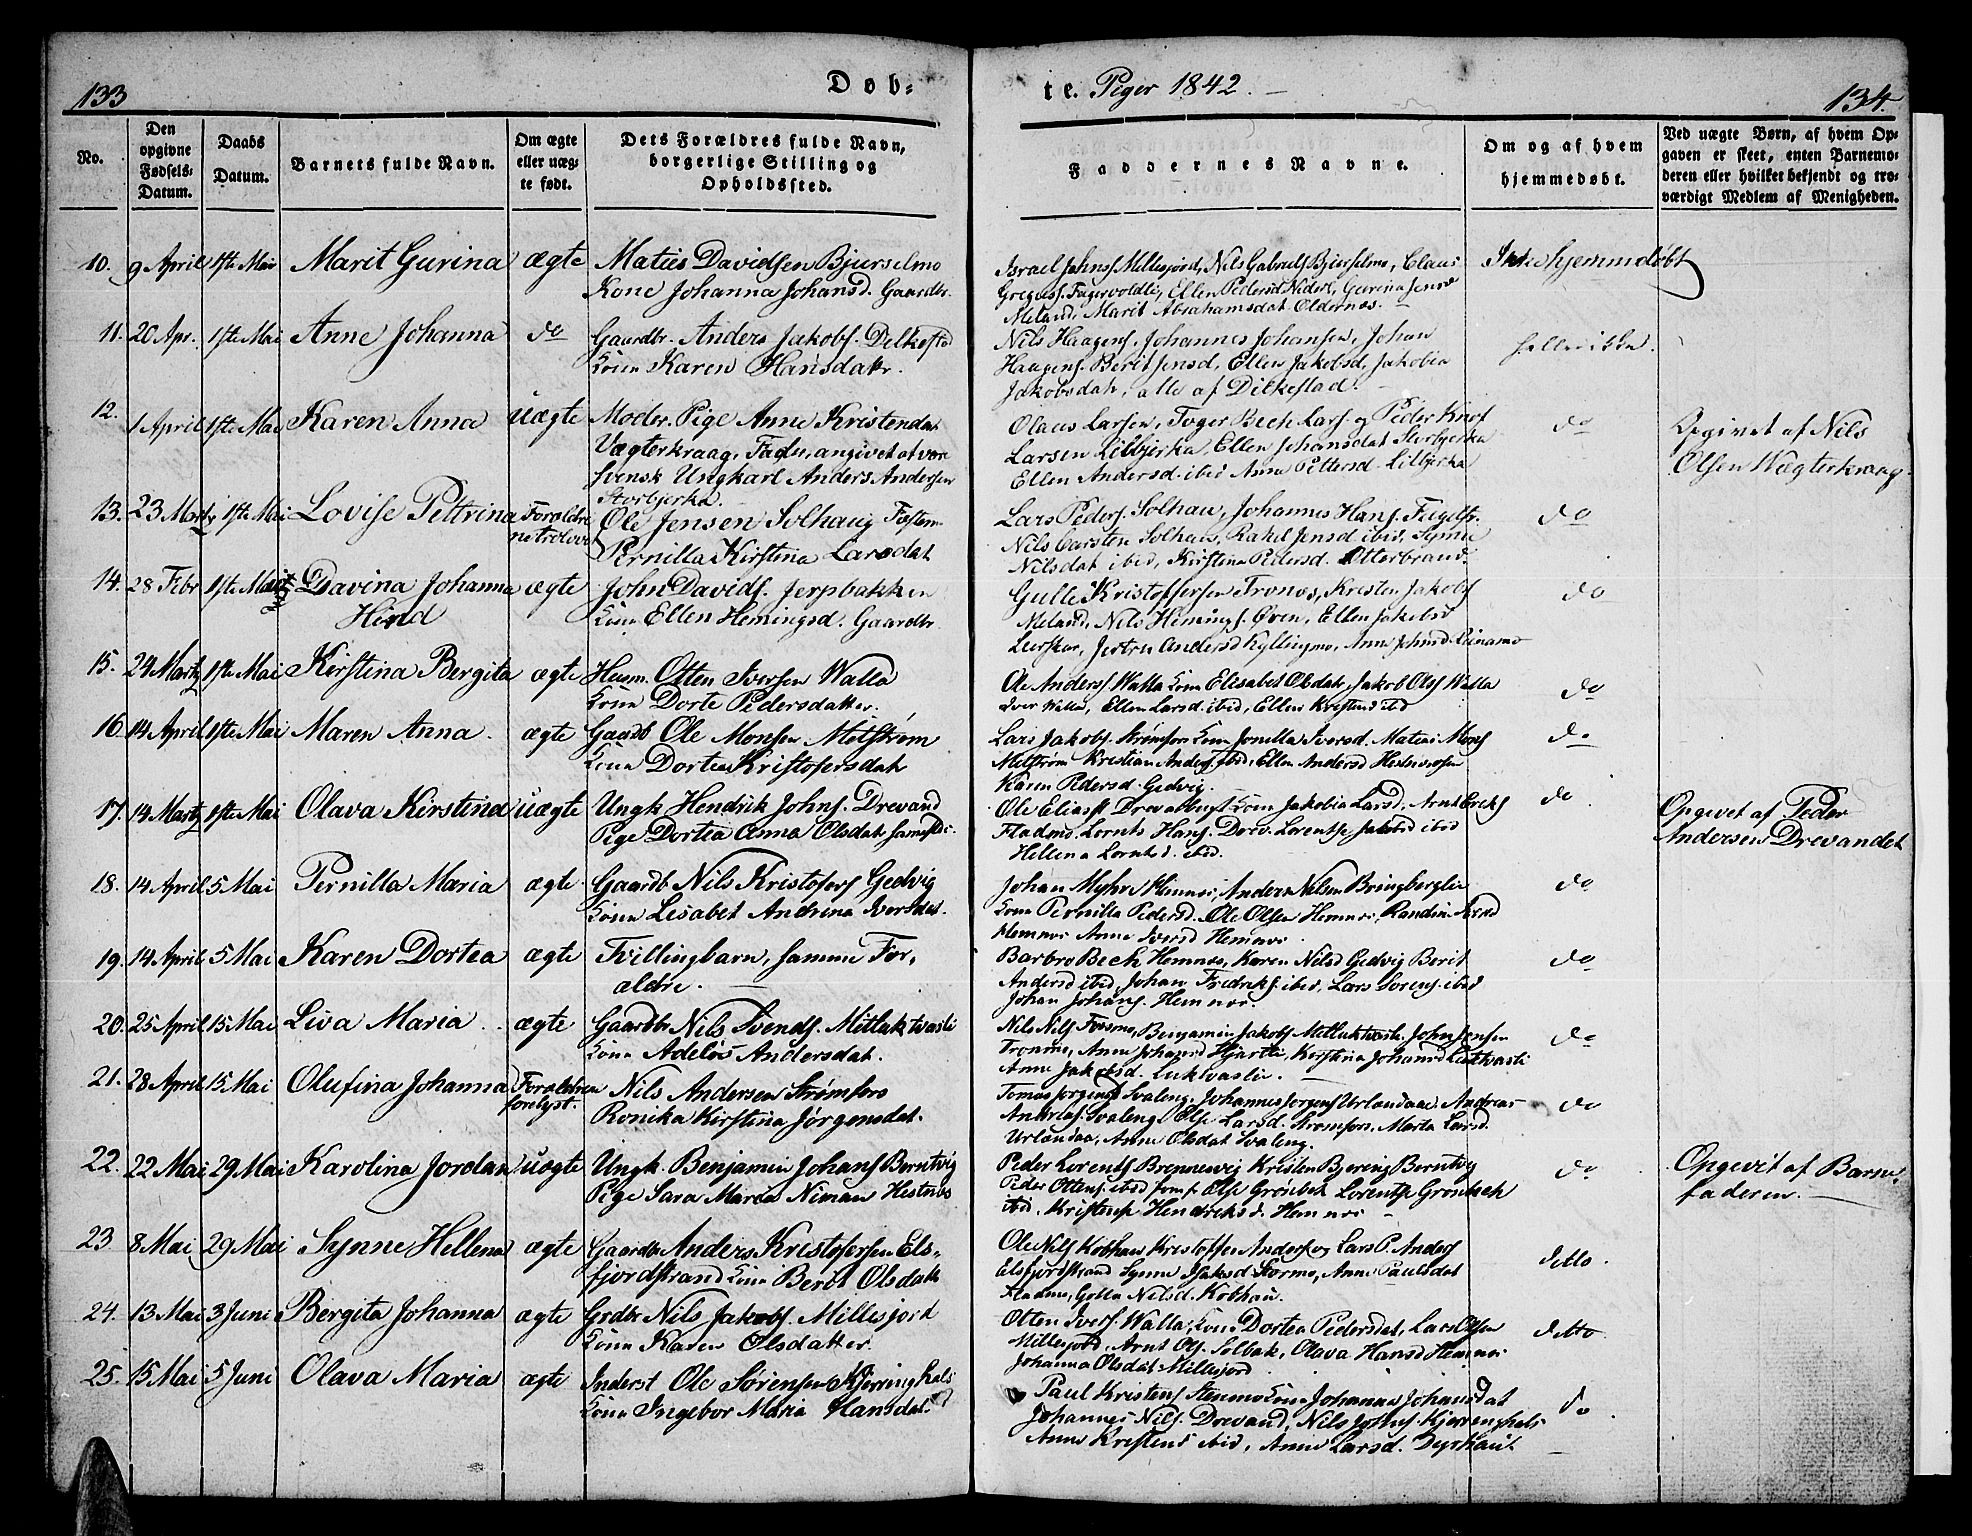 133
Døb-
te. Piger 1842.
134.
No.
Den opgivne Fødsels-Datum.
Daabs Datum.
Barnets fulde Navn.
Om ægte eller uægte født.
Dets Forældres fulde Navn, borgerlige Stilling og Opholdssted.
Faddernes Navne.
Om og af hvem hjemmedøbt.
Ved uægte Børn, af hvem Opgaven er skeet, enten Barnemoderen eller hvilket bekjendt og troværdigt Medlem af Menigheden.
10. 9 April 1ste Mai Marit Gurina ægte Maties Davidsen Bjurselmo
Kone Johanna Johansd. Gaardbr.
Israel Johns Millesjord, Nils Gabriels Bjurselmo, Claus
Ellen Pedersd
Marit Abrahamsdat Oldernæs.
Ikke hjemmdøbt
11. 20 Apr. 1ste Mai Anne Johanna do Gaardbr. Anders Jakobs.
Kone Karen Hansdatr.
Nils Haagens, Johannes Johansen, Johan
Haagens. Berit Jensd, Ellen Jakobsd, Jakobia
Jakobsdat, alle af Dilkestad.
heller ikke.
12. 1 April 1ste Mai Karen Anna uægte Moder. Pige Anne Kristensdat
Vægterkraag, Fader, angivet at være
Svensk Ungkarl Anders Andersen
Storbjerka.
Olaus Larsen, Beck Lars og Peder Knof
Larsen Litbjerka, Ellen Johansdat Storbjerka
Ellen Andersd. ibid Anne Pettersd. Litbjerka
do
Opgivet af Nils
Olsen Vægterkraag.
13. 23 Marty 1ste Mai Lovise Pettrina Forældre
ne trolovet
Ole Jensen Solhaug
Pernilla Kirstina Larsdat
Lars Peders. Solhau, Johannes Hans.
Nils Carsten Solhau, Rakel Jensd ibid, Synne
Nilsdat ibid, Kirstina Pedersd. Otterbrand.
do
14. 28 Febr 1ste Mai Davina Johanna
Hind
ægte John Davids. Jerpbakken
Kone Ellen Hemingsd. Gaardbr.
Gulle Kristoffersen Fronæs, Kristen Jakobs
Meland, Nils Hemings. Øren, Ellen Jakobsd
Andersd Kyllingmo, Anne Johnsd. Leinamo
do
15. 24 Marty 1ste Mai Kirstina Bergita ægte Husm. Otten Iversen Walla
Kone Dorte Pedersdatter.
Ole Anders. Walla Kone Elisabet Olsdat, Jakob Ols Walla
Iver Walla, Ellen Larsd. ibid, Ellen Kristensd ibid
do
16. 14 April 1ste Mai Maren Anna. ægte Gaardb Ole Monsen Mølstrøm
Kone Dortea Kristofersdat
Lars Jakobs. Strømfors Kone Jonilla Iversd. Matias Mons
Kristian Anders. ibid, Ellen Andersd
Karen Pedersd. Gedvig.
do
17. 14 Marty 1ste Mai Olava Kirstina uægte Ungk. Hendrik Johns. Drevand
Pige Dortea Anna Olsdat
Ole Elias. Drevand Kone Jakobia Larsd. Arnt Ericks
Fladmo. Lornts Hans. Drev. Lorentse Jakobsd ibid
Hellena Lorntsd. ibid.
do.
Opgevet af Peder
Andersens Drevandet
18. 14 April 5 Mai Pernilla Maria ægte. Gaardb Nils Kristofers Gedvig
Kone Lisabet Andrina Iversdat.
Johan Myhre Hemnes, Anders Nilsen Bringberglie
Kone Pernilla Pedersd. Ole Olsen Hemnes, Randine
Hemnes Anne Iversd Hemnes.
do
19. 14 April 5 Mai Karen Dortea ægte Tvillingbarn, samme For,
ældre.
Barbro Beck Hemnes, Karen Nilsd Gedvig Berit
Andersd ibid, Johan Fredriks. ibid, Lars Sorens. ibid
Johan Johans. Hemnes.
do
20. 25 April 15 Mai Liva Maria ægte Gaardbr Nils Svends. Mitluktvasli
Kone Adelös Andersdat.
Nils Nils Forsmo, Benjamin Jakobs Mitluktvasli, John Jensen
Anne Johansd Hjartli, Kirstina Johansd
Anne Jakobsd. Luktvaslie.
do
21. 28 April 15 Mai Olufina Johanna Forældren
forelyst.
Nils Andersen Strømfors
Ronika Kirstina Jørgensdat.
Tomas Jorgens Svaleng, Johannes Jorgens Urlandaa. Andreas
Svaleng. Else Larsd. Strømfors, Marta Larsd.
Urlandaa, Anne Olsdat Svaleng.
do
22. 22 Mai 29 Mai Karolina Jordan uægte Ungk. Benjamin Johans Berntvig
Pige Sara Maria Niman Hestnes
Peder Lorents Brennesvig Kristen Bjering Berntvig
Peder Ottens. ibid Else Grønbek Lorentse Grønbeck
ibid, Hendriksd. Hemnes
do
Opgevit af Barne
faderen.
23. 8 Mai 29 Mai Synne Hellena ægte Gaardbr Anders Kristofersen Els-
fjordstrand Kone Berit Olsdatr
Ole Nils Kobhau Kristoffer Anders og Lars P. Anders
Elsfjordstrand Synne Isaksd. Stormo, Anne Paulsdat
Fladmo, Golla Nilsd. Kobhau.
ditto.
24. 13 Mai 3 Juni Bergita Johanna ægte Grdbr Nils Jakobs. Millesjord
Kone Karen Olsdatter.
Otten Ivers. Walla, Kone Dortea Pedersdat, Lars Olsen
Millesjord, Arnt Ols. Solbak, Olava Hansd Hemnes
Johanna Olsdat Millesjord
ditto.
25. 15 Mai 5 Juni Olava Maria ægte Inderst Ole Sørensen Kjerringhals
Kone Ingebor Maria Hansdat.
Paul Kristens Stenmo Kone Johanna Johansdat
Johannes Nils. Drevand, Nils Johns. Kjerringhals
Anne Kristensd ibid, Anne Larsd. Dyrhaut
do